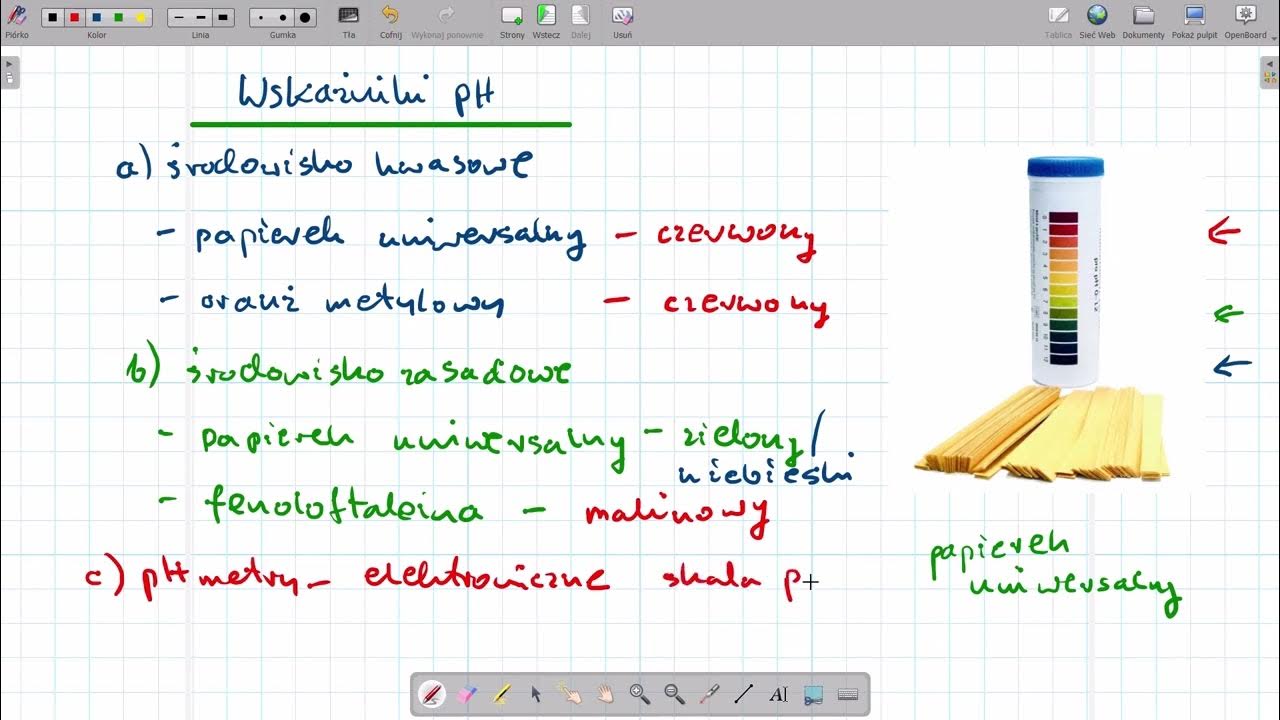 Kolor Linia Gumka Tła Cofnij Wykonaj ponownie Strony Wstecz Dalej Usuń Tablica Sieć Web Dokumenty Pokaż pulpit OpenBoard
Piórko
Wskaźniki pH
a) środowisko kwasowe
- papierek uniwersalny - czerwony
- oranż metylowy - czerwony
b) środowisko zasadowe
- papierek uniwersalny - zielony/
niebieski
- fenoloftaleina - malinowy
c) pH metry - elektroniczne skala p
0
1
2
3
4
5
6
7
8
9
10
11
12
pH 0-12
papierek
uniwersalny
AI